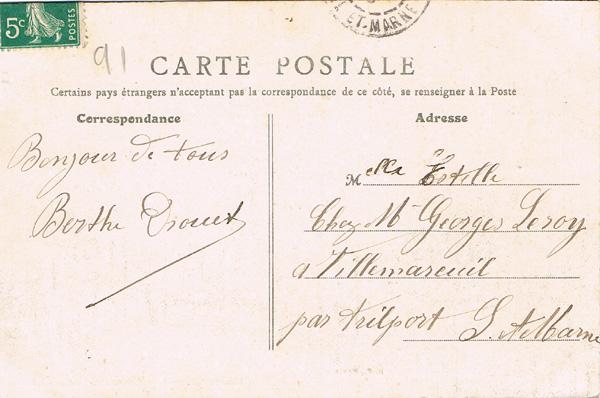 5c
POSTES
ET-MARNE
91
CARTE POSTALE
Certains pays étrangers n'acceptant pas la correspondance de ce côté, se renseigner à la Poste
Correspondance
Adresse
Bonjour de tous
Berthe Drouet
Melle Estelle
Chez Mr Georges Leroy
a Villemareuil
par Trilport S. et Marne